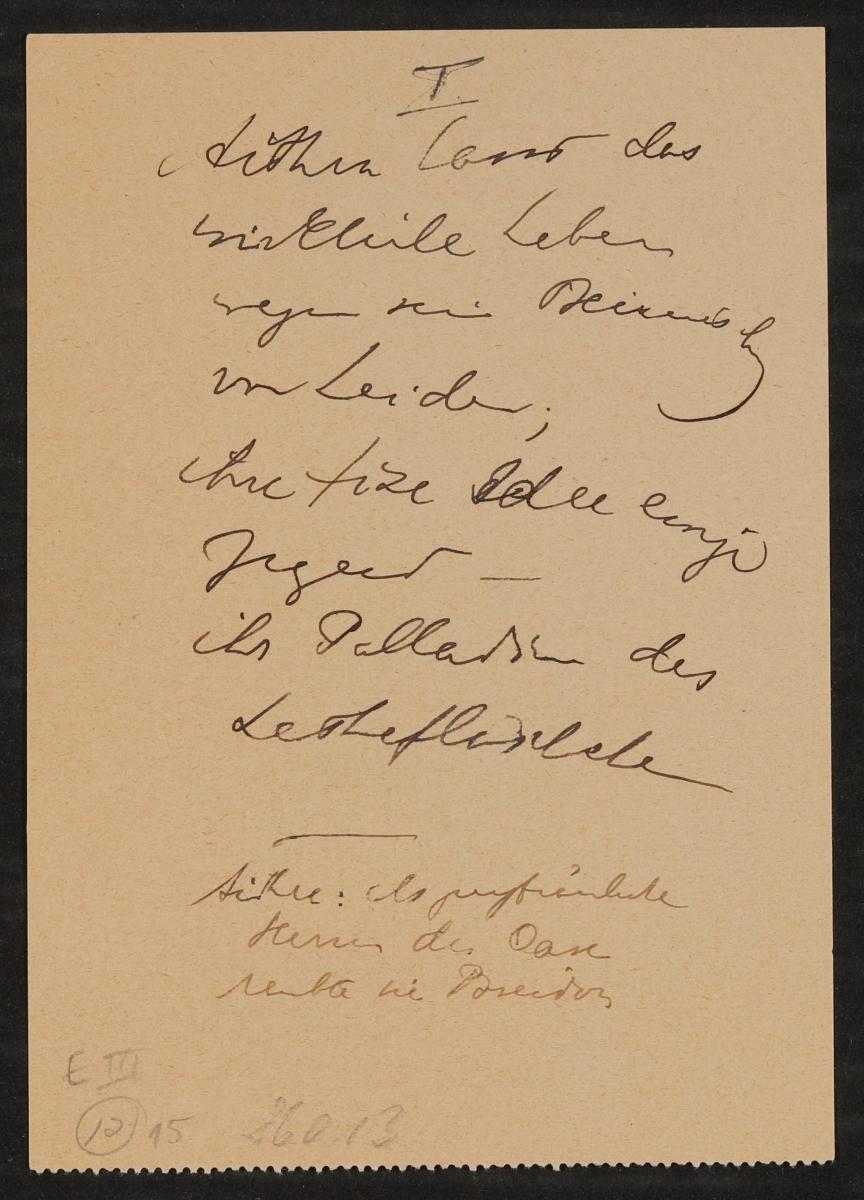 I
Aithra das
wirkliche Leben
wegen seiner Beimischung
von Leiden;
ihre fixe Idee ewige
Jugend —
ihr Palladium das
Lethefläschchen
Aithra: als jungfräuliche
Herrin der Oase
raubte sie Poseidon
E III
12 15
260.13